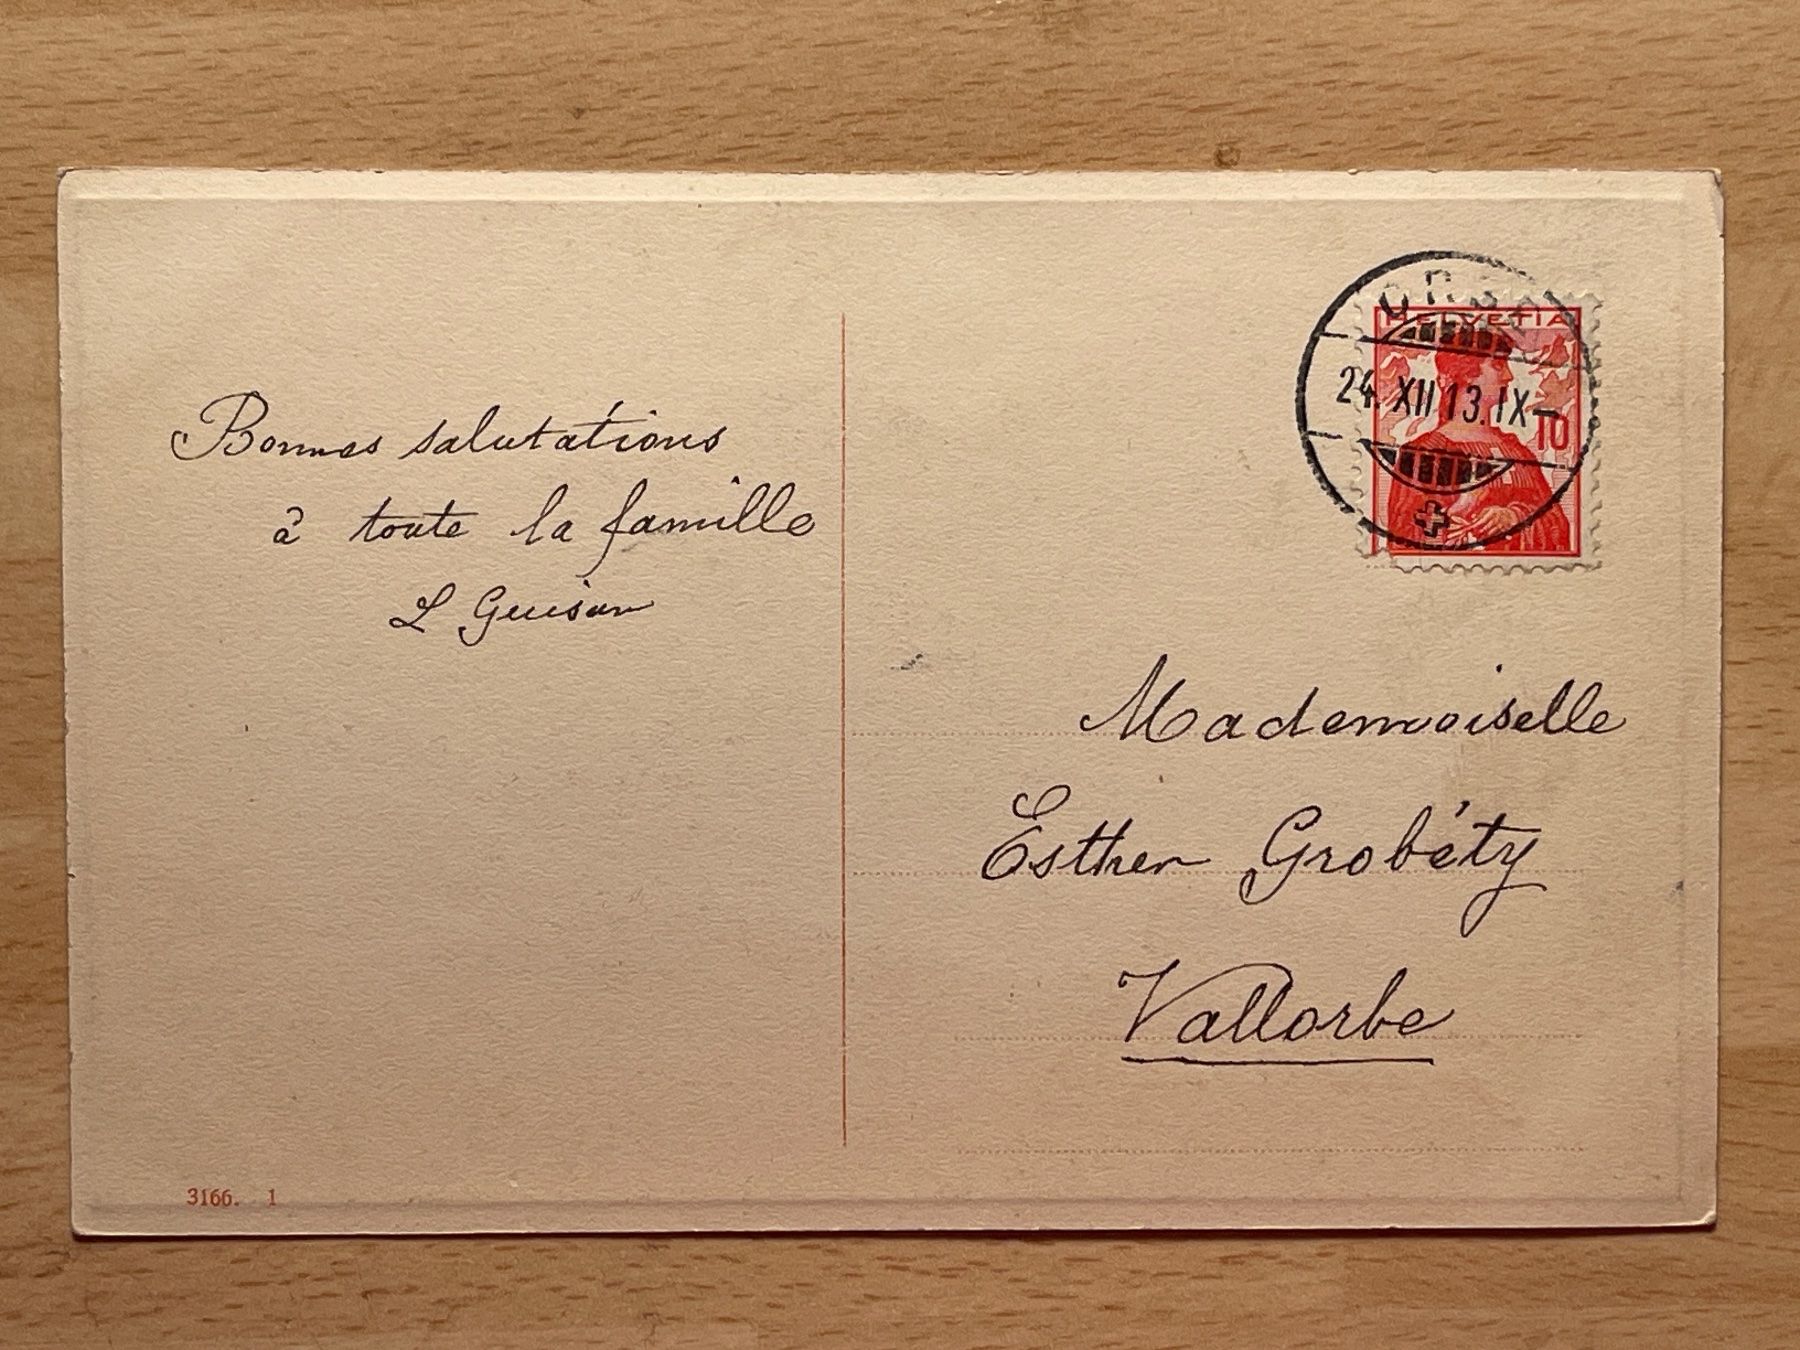 Bonnes salutations
à toute la famille
L Guisan
HELVETIA
24. XII 13. IX-
10
Mademoiselle
Esther Grobéty
Vallorbe
3166. 1